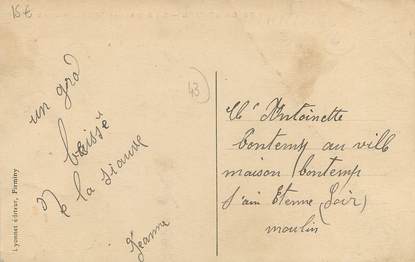 15 €
43
un gro
beissè
a la sianne
Jeanne
Lyonnet éditeur, Firminy
Mle Antoinette
bontemp au vill
maison (bontemp
S'ain Etienne (Loir)
moulin